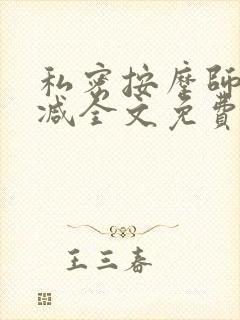 私密按摩師
减全文免費
王三春